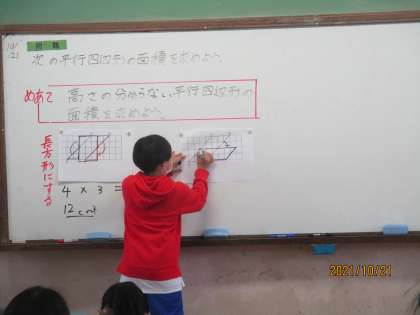 10/21
問題
次の平行四辺形の面積を求めよう。
めあて
高さの分からない平行四辺形の
面積を求めよう。
長方形にする
4 × 3 =
12cm²
2021/10/21